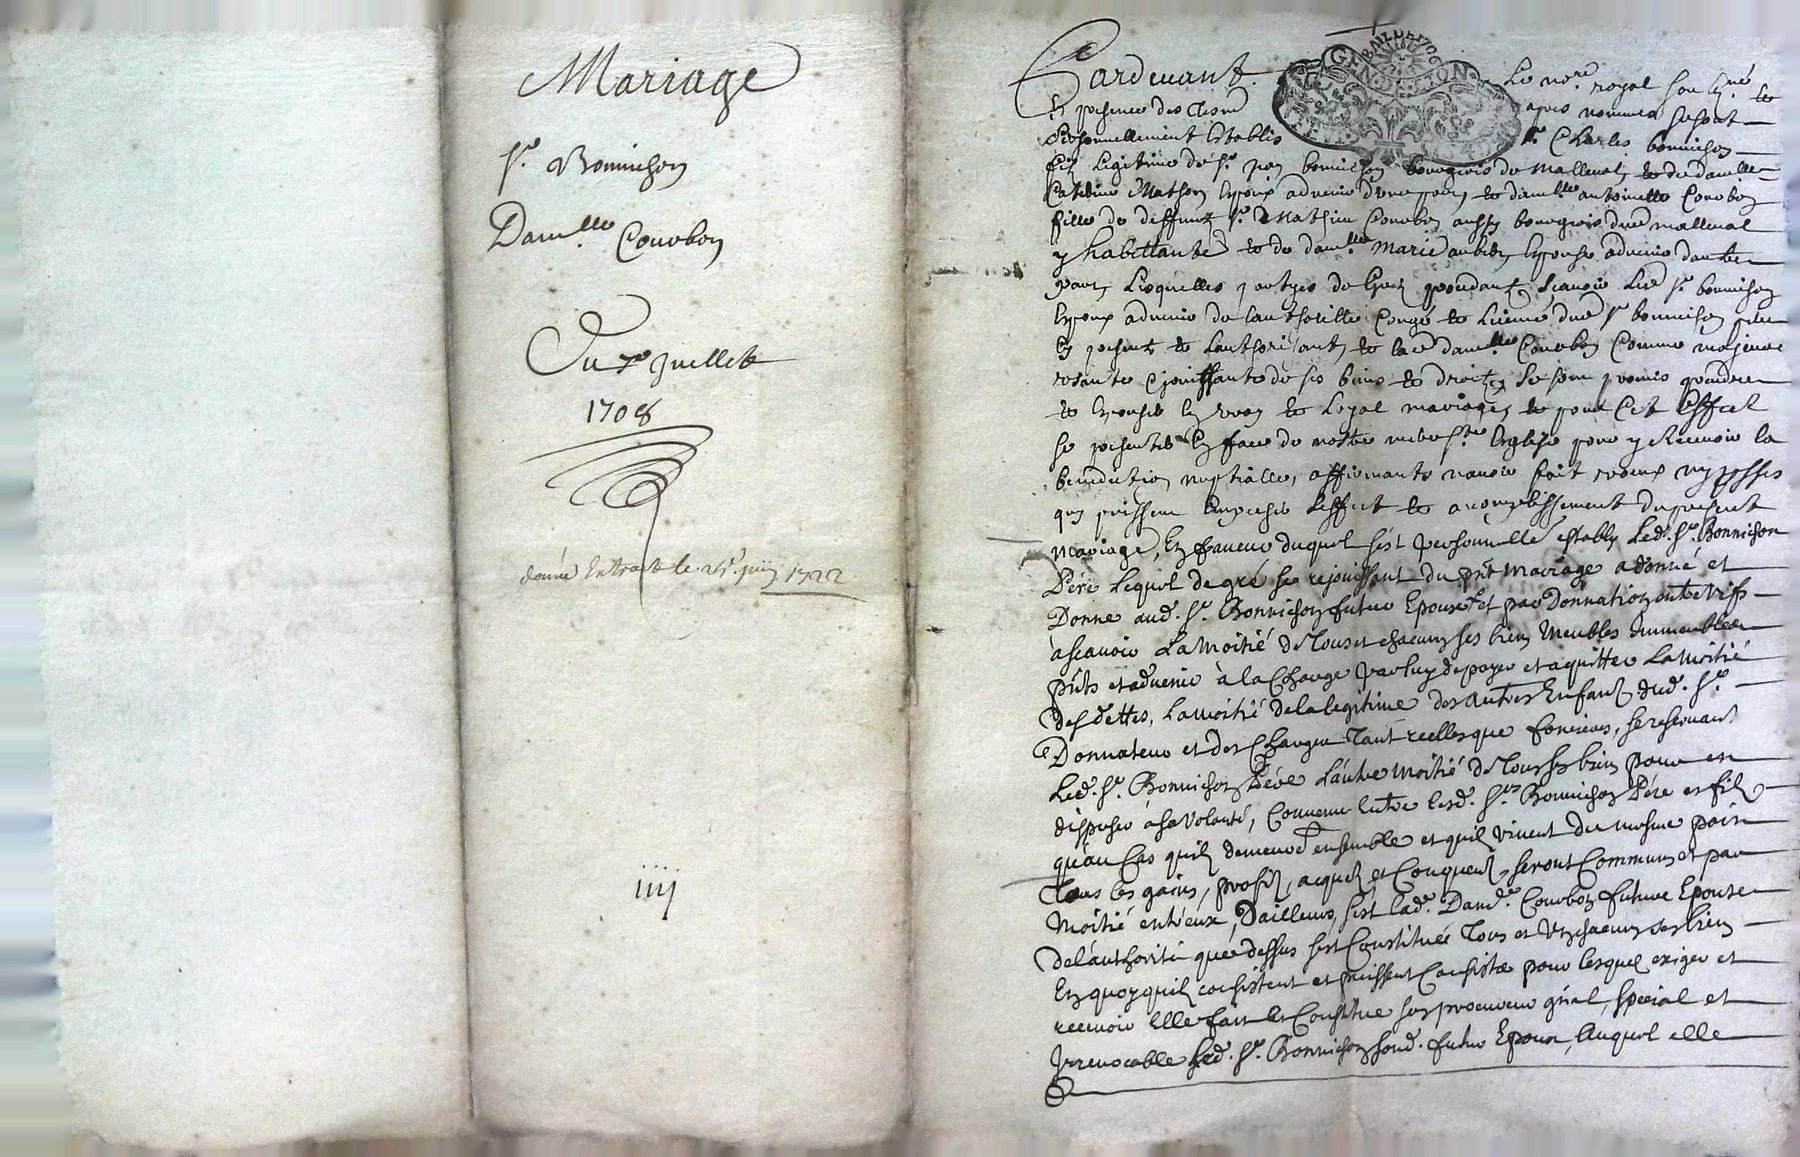 Mariage
Sr. Bonnichon
Damlle Courbon
Du 7e Juillet
1708
donné Extrait le 25e. juin 1722
iiij
Pardevant Le nore. royal soubzné et
En presence des Tesm apres nommes se sont
Personnellement Establis Sr. Charles bonnichon
fils Legitime de Sr. bonnichon bourgeois de Mallevat et de damlle
Catherine Mathon Epoux advenir d'une part et damlle antoinette Courbon
fille de deffunt Sr. Mathieu Courbon aussy bourgeois dud mallevat
y habittante et de damlle Marie Epouse advenir dautre
part, Lesquelles partyes de Gred scavoir Led Sr. bonnichon
Epoux advenir de lauthoritte Congé et Licence dud Sr. bonnichon pere
Ey present et Lauthorisant, et lad damlle Courbon Comme majeure
usante et jouissante de ses biens et droits, se sont promis prendre
et Epouser En vray et Loyal mariage, et pour Cet Effect
se presenter En face de nostre mere Ste Esglize pour y Recevoir la
benediction nuptialle, affirmants navoir fait voeux ny
qui puissent Empescher Leffect et acomplissement du present
mariage, En faveur duquel s'est personnellé estably Led. Sr. Bonnichon
Pére Lequel de gré se rejouissant du pnt mariage a donné et
Donne aud. Sr. Bonnichon futur Epoux et par Donnation entre vifs
àscavoir La Moitié de Tous et chacuns ses biens Meubles immeubles
pnts et advenir à la Charge par luy de payer et aquitter La Moitié
des dettes, La moitié de la legitime des autres Enfans dud. Sr.
Donnateur et des Charges Tant reelles que foncieres, se reservant
Led. Sr. Bonnichon Pére L'autre Moitié de Tous ses biens pour en
disposer à sa Volonté, Convenu Entre lesd. Srs Bonnichon Pére et fils
qu'au Cas quils demeurt ensemble et quils vivent du mesme pain
Tous les gains, profits, acquets et Conquets, seront Communs et par
Moitié entr'eux, D'ailleurs, s'est lad. Damlle. Courbon future Epouse
de l'authorité que dessus s'est Constituée Tous et Un chacuns ses biens
En quoy quils consistent et puissent Consister pour lesquels exiger et
recevoir Elle fait et Constitue son procureur gnal, special et
Irrevocable Led. Sr. Bonnichon sond. futur Epoux, Auquel elle